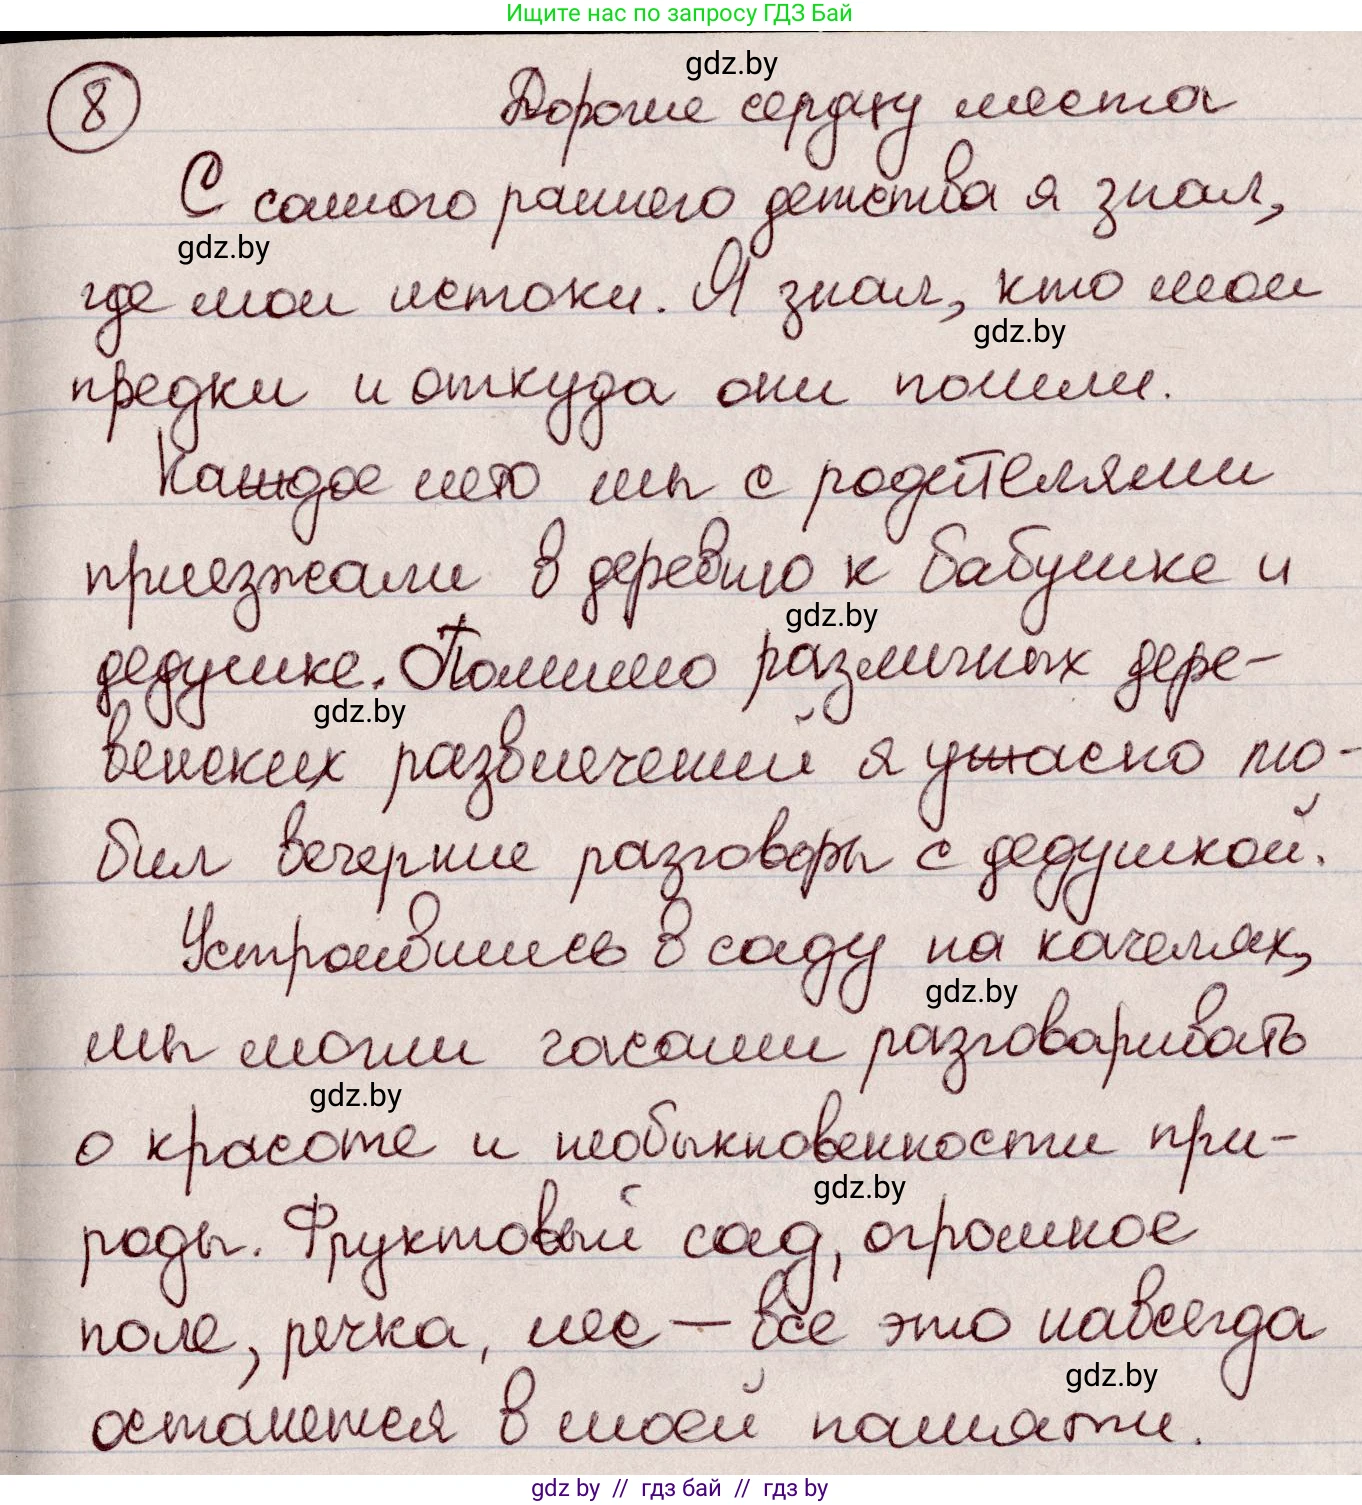 Ищите нас по запросу ГДЗ Бай
gdz.by
8 Дорогие сердцу места
С самого раннего детства я знал,
gdz.by
где мои истоки. Я знал, кто мои
gdz.by
предки и откуда они пошли.
Каждое лето мы с родителями
приезжали в деревню к бабушке и
gdz.by
дедушке. Помимо различных дере-
gdz.by
венских развлечений я ужасно лю-
бил вечерние разговоры с дедушкой.
Устроившись в саду на качелях,
gdz.by
мы могли часами разговаривать
gdz.by
о красоте и необыкновенности при-
gdz.by
роды. Фруктовый сад, огромное
поле, речка, лес — все это навсегда
gdz.by
останется в моей памяти.
gdz by // гдз бай // гдз by